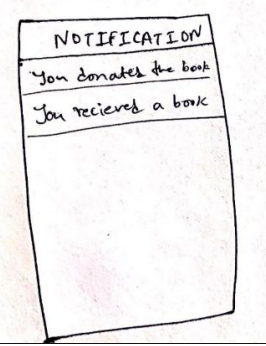 NOTIFICATION
You donates the book
You recieved a book